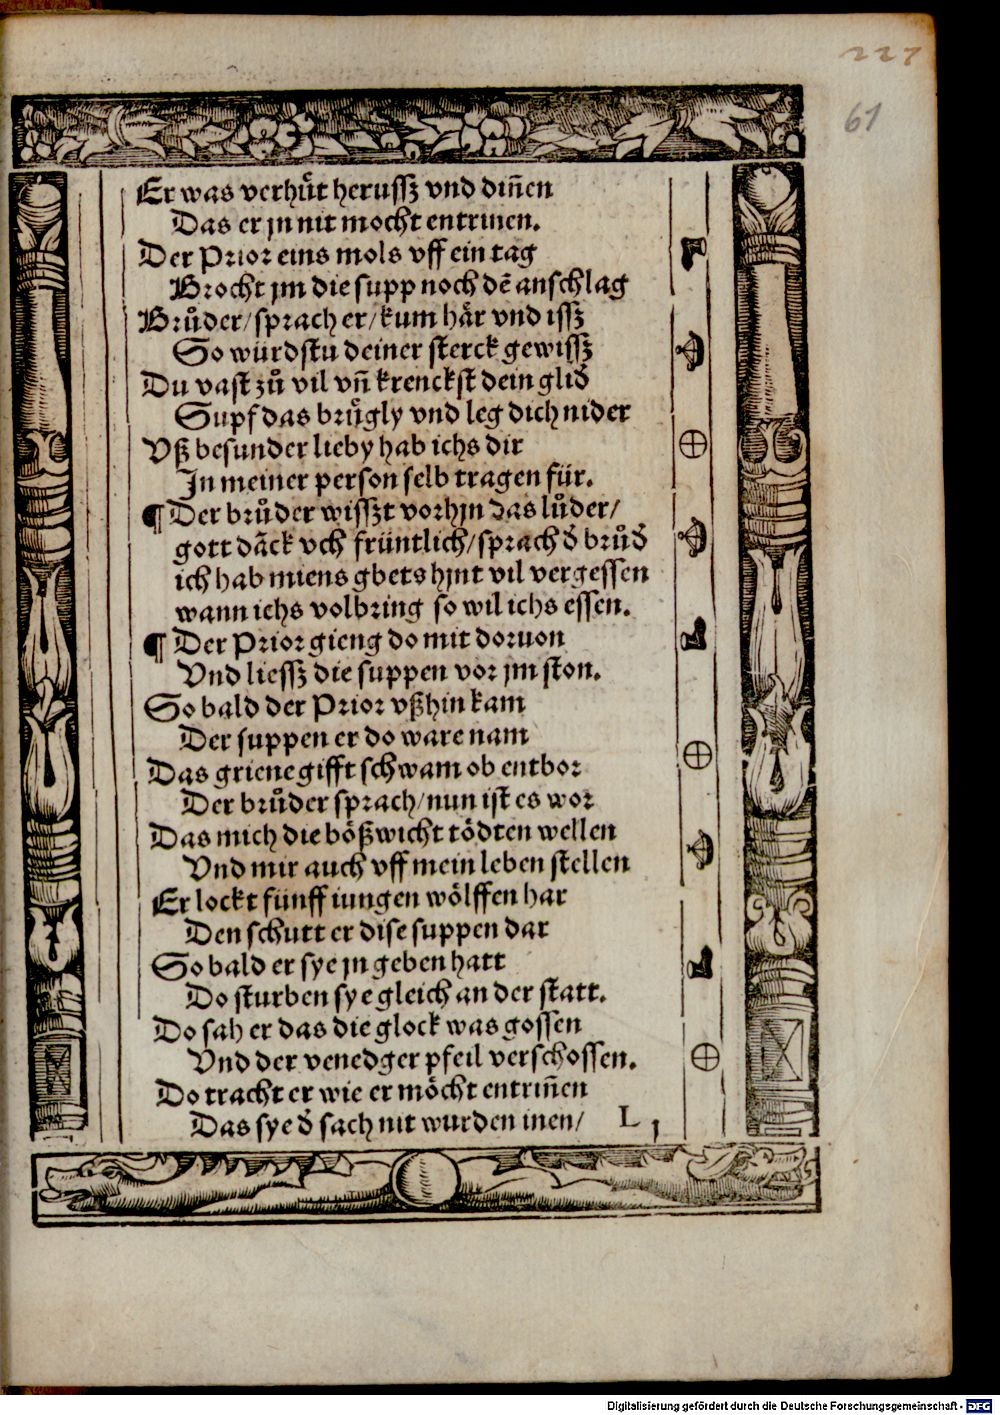 227
61
Er was verhuͤt herussz vnd diñen
Das er jn nit mocht entrinen.
Der Prior eins mols vff ein tag
Brocht jm die supp noch dē anschlag
Bruͦder/ sprach er/ kum haͤr vnd issz
So würdstu deiner sterck gewissz
Du vast zuͦ vil vñ krenckst dein glid̕
Supf das bruͤgly vnd leg dich nider
Vß besunder lieby hab ichs dir
In meiner person selb tragen für.
¶ Der bruͦder wisszt vorhjn das luͦder/
gott dāck vch früntlich/ sprach d̕ bruͦd̕
ich hab miens gbets hjnt vil vergessen
wann ichs volbring so wil ichs essen.
¶ Der Prior gieng do mit doruon
Vnd liessz die suppen vor jm ston.
So bald der Prior vßhin kam
Der suppen er do ware nam
Das griene gifft schwam ob entbor
Der bruͦder sprach/ nun ist es wor
Das mich die boͤßwicht toͤdten wellen
Vnd mir auch vff mein leben stellen
Er lockt fünff iungen woͤlffen har
Den schutt er dise suppen dar
So bald er sye jn geben hatt
Do sturben sye gleich an der statt.
Do sah er das die glock was gossen
Vnd der venedger pfeil verschossen.
Do tracht er wie er moͤcht entriñen
Das sye d̕ sach nit wurden inen/ L j
Digitalisierung gefördert durch die Deutsche Forschungsgemeinschaft - DFG